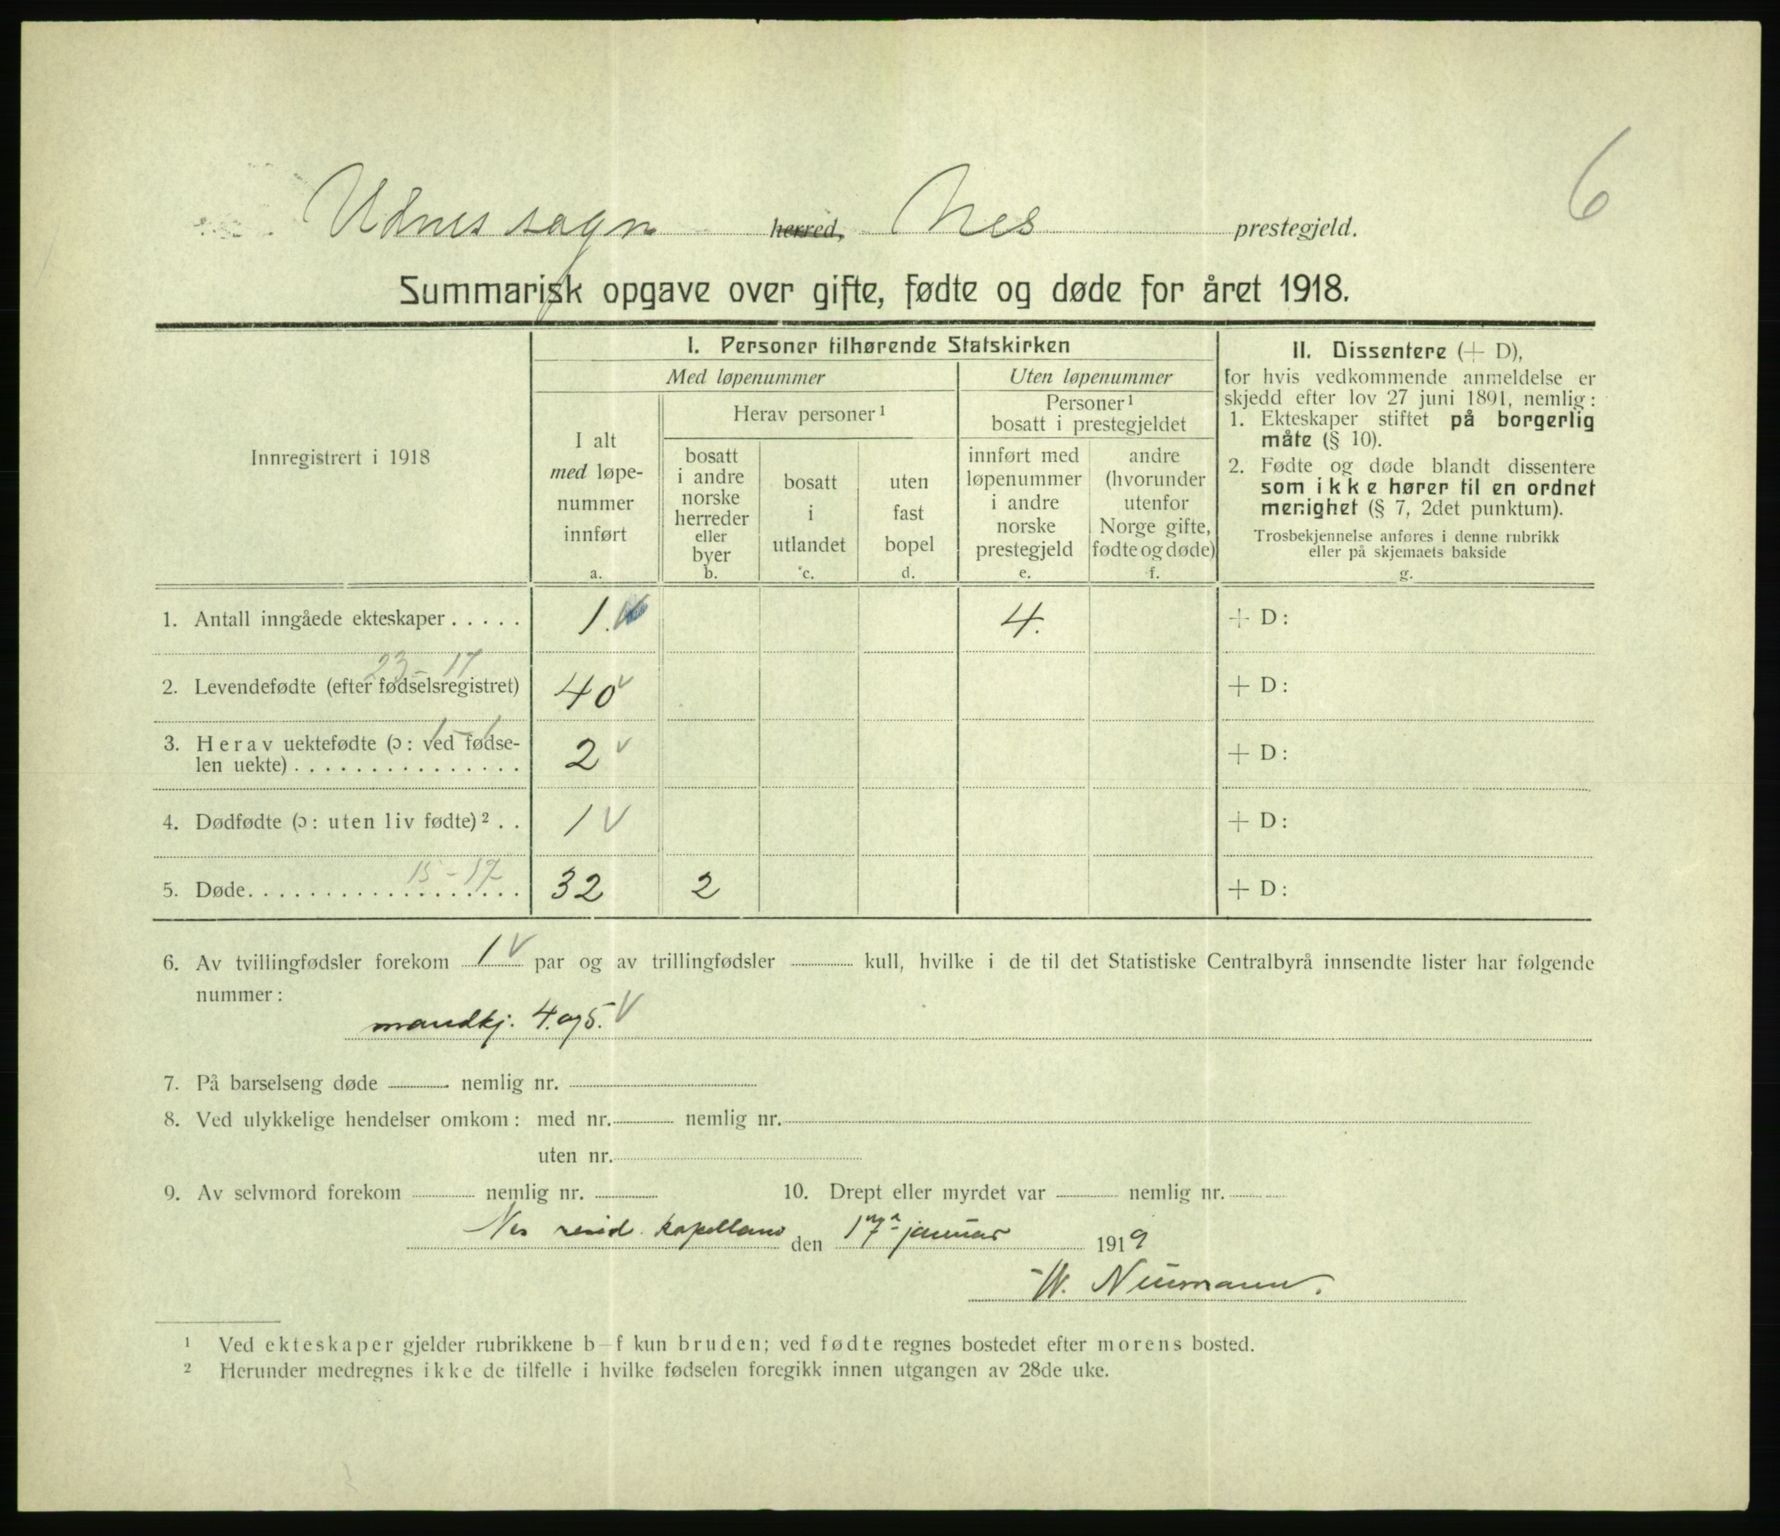 6
Udnes sogn herred, Nes prestegjeld.
Summarisk opgave over gifte, fødte og døde for året 1918.
Innregistrert i 1918
I. Personer tilhørende Statskirken
Med løpenummer
Uten løpenummer
I alt
med løpe-
nummer
innført
a.
Herav personer¹
bosatt
i andre
norske
herreder
eller
byer
b.
bosatt
i
utlandet
c.
uten
fast
bopel
d.
Personer¹
bosatt i prestegjeldet
innført med
løpenummer
i andre
norske
prestegjeld
e.
andre
(hvorunder
utenfor
Norge gifte,
fødte og døde)
f.
II. Dissentere (+ D),
for hvis vedkommende anmeldelse er
skjedd efter lov 27 juni 1891, nemlig:
1. Ekteskaper stiftet på borgerlig
måte (§ 10).
2. Fødte og døde blandt dissentere
som ikke hører til en ordnet
menighet (§ 7, 2det punktum).
Trosbekjennelse anføres i denne rubrikk
eller på skjemaets bakside
g.
1. Antall inngåede ekteskaper . . . . . 1. V 4. + D:
23 - 17
2. Levendefødte (efter fødselsregistret) 40 V + D:
1 - 1
3. Herav uektefødte (ɔ: ved fødse-
len uekte) . . . . . . . . . . . . . . . 2 V + D:
4. Dødfødte (ɔ: uten liv fødte) ² . . 1 V + D:
15 - 17
5. Døde. . . . . . . . . . . . . . . . . . 32 2 + D:
6. Av tvillingfødsler forekom 1 V par og av trillingfødsler kull, hvilke i de til det Statistiske Centralbyrå innsendte lister har følgende
nummer:
mandkj. 4. og 5. V
7. På barselseng døde nemlig nr.
8. Ved ulykkelige hendelser omkom: med nr. nemlig nr.
uten nr.
9. Av selvmord forekom nemlig nr. 10. Drept eller myrdet var nemlig nr.
Nes resid. kapellani den 17 januar 1919
W. Neumann.
¹ Ved ekteskaper gjelder rubrikkene b–f kun bruden; ved fødte regnes bostedet efter morens bosted.
² Herunder medregnes ikke de tilfelle i hvilke fødselen foregikk innen utgangen av 28de uke.